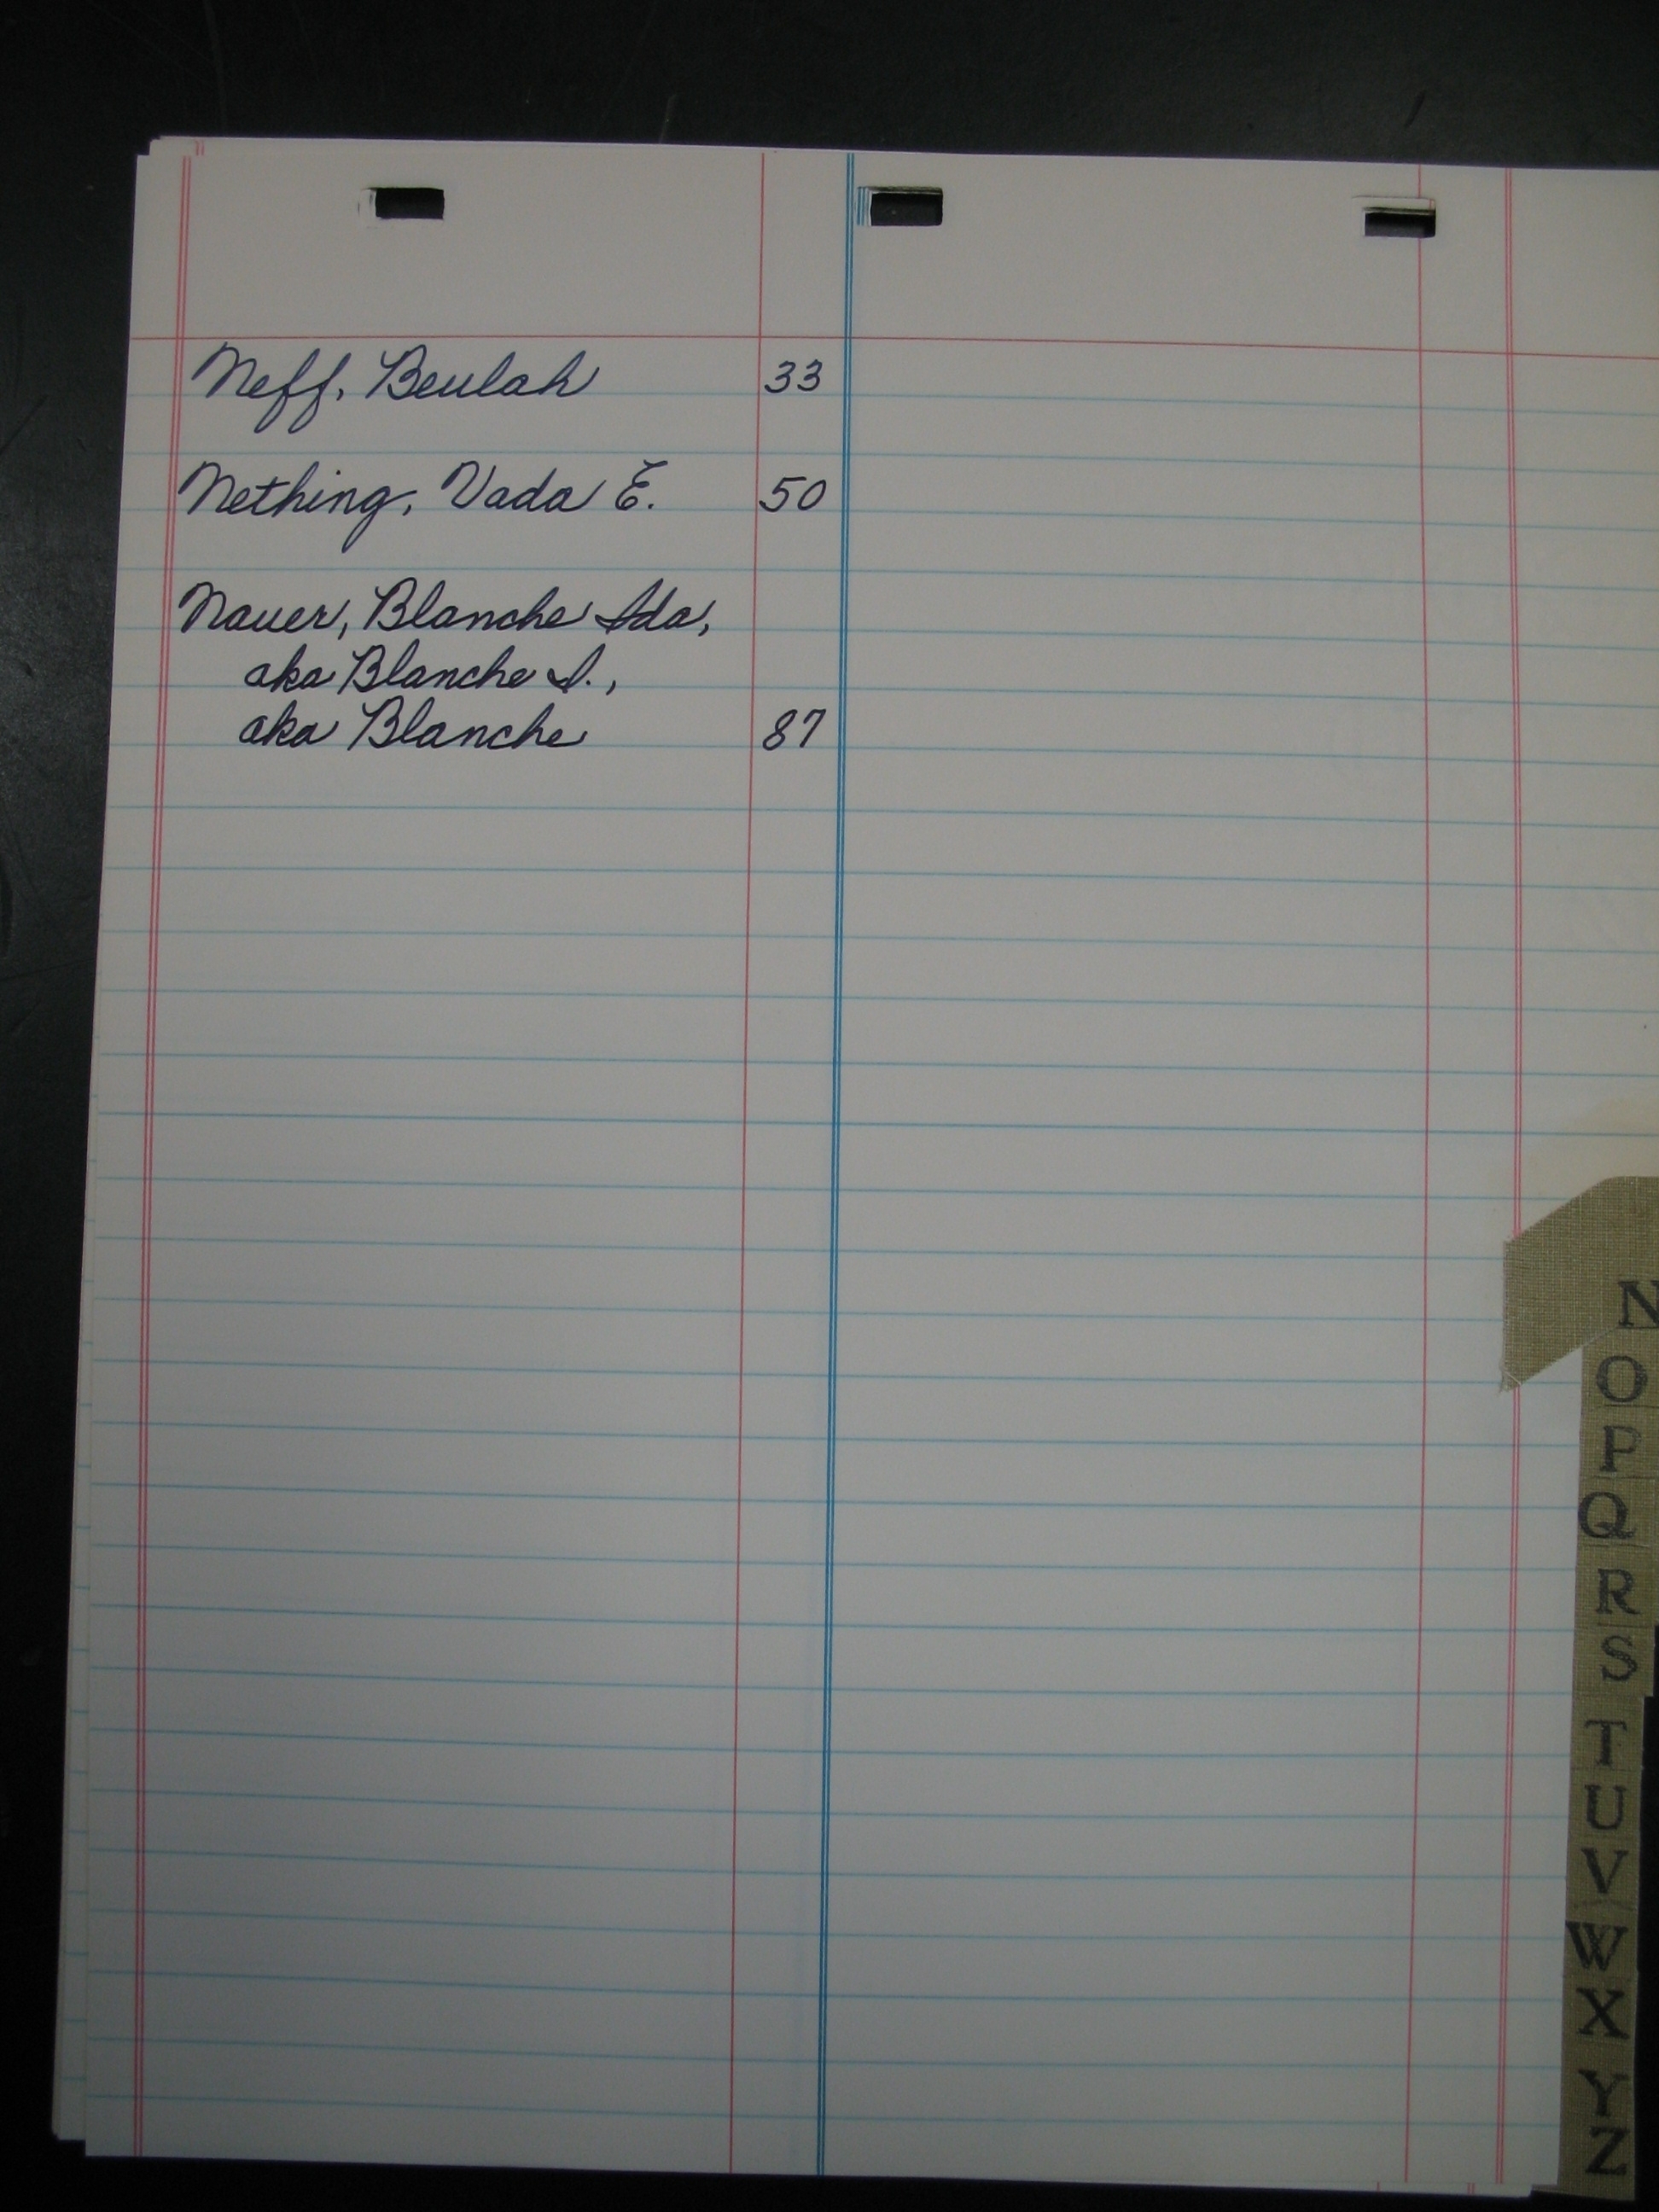 Neff, Beulah 33
Nething, Vada E. 50
Nauer, Blanche Ida,
aka Blanche I.,
aka Blanche 87
N
O
P
Q
R
S
T
U
V
W
X
Y
Z